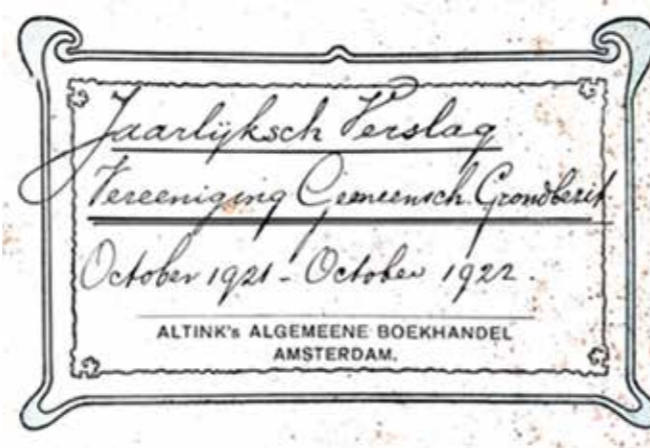 Jaarlijksch Verslag
Vereeniging Gemeensch. Grondbezit
October 1921 - October 1922.
ALTINK's ALGEMEENE BOEKHANDEL
AMSTERDAM.